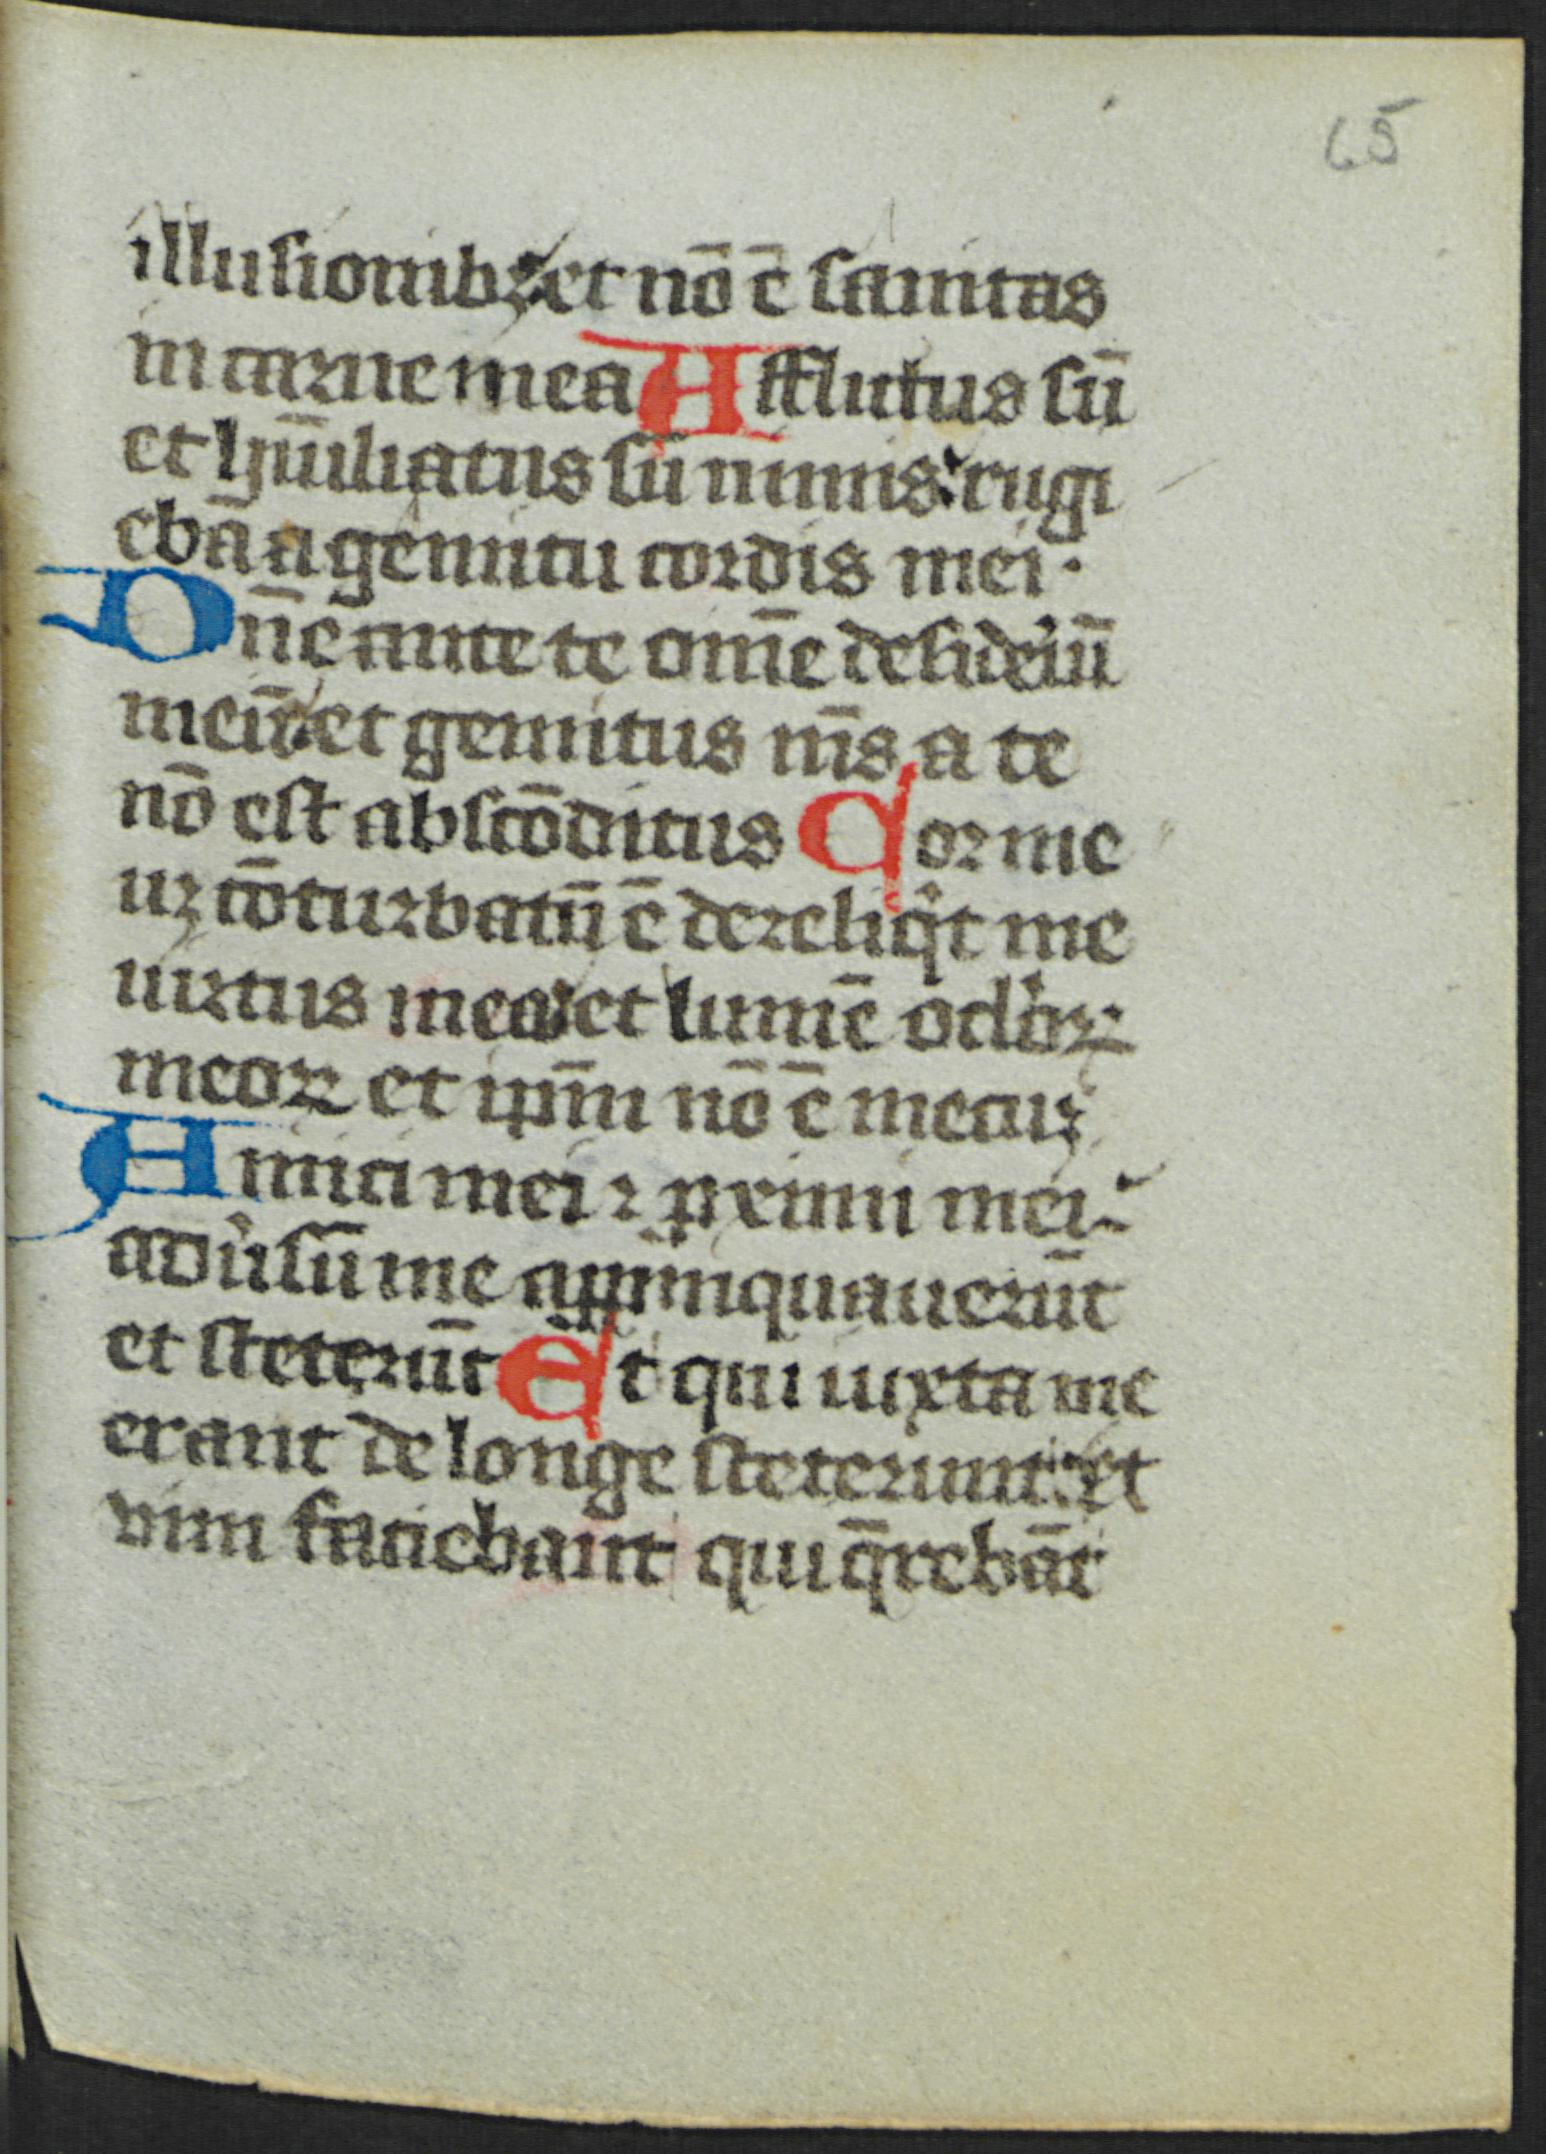 65
illusionibꝫ et nō ē sanitas
in carne mea Afflictus sū
et hūiliatus sū nimis: rugi
ebā a gemitu cordis mei.
Dn̄e ante te om̄e desideriū
meū: et gemitus m̄s a te
nō est abscōditus Cor me
uꝫ cōturbatū ē dereliqͥt me
uirtus mea: et lumē oclōꝝ
meoꝝ et ip̄m nō ē mecuꝫ
Amici mei ⁊ ꝓximi mei:
aduͥsū me appͥnquauerūt
et steterūt Et qui iuxta me
erant de longe steterunt: et
vim faciebant qui q̄rebāt